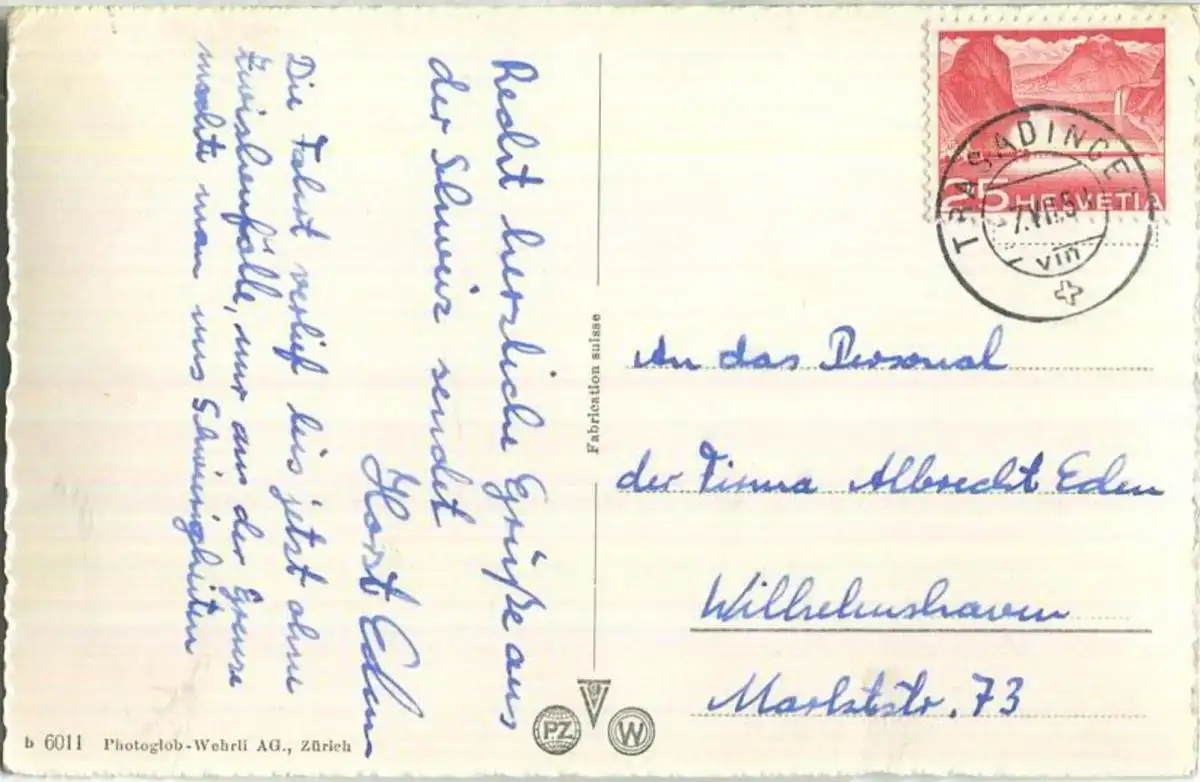 Recht herzliche Grüße aus
der Schweiz sendet
Horst Eden
Die Fahrt verlief bis jetzt ohne
Zwischenfälle, nur an der Grenze
machte man uns Schwierigkeiten
Fabrication suisse
TRASADINGEN
7.VII.5
VIII
25 HELVETIA
An das Personal
der Firma Albrecht Eden
Wilhelmshaven
Marktstr. 73
PZ
W
b 6011 Photoglob-Wehrli AG., Zürich